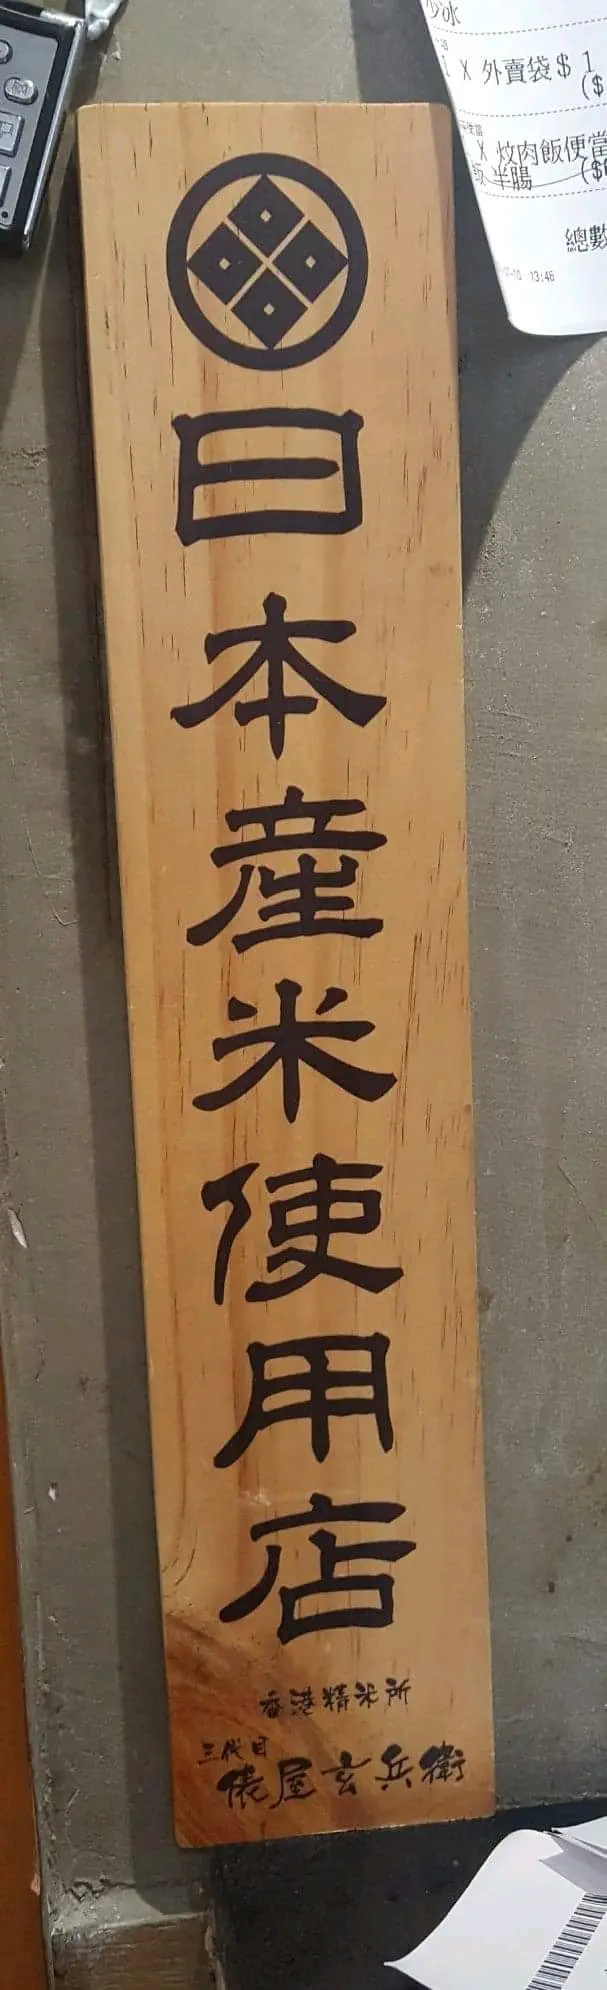 日本産米使用店
香港精米所
三代目
俵屋玄兵衛
少冰
X 外賣袋 $ 1
($
X 炆肉飯便當
半腸 ($
總數
13:46